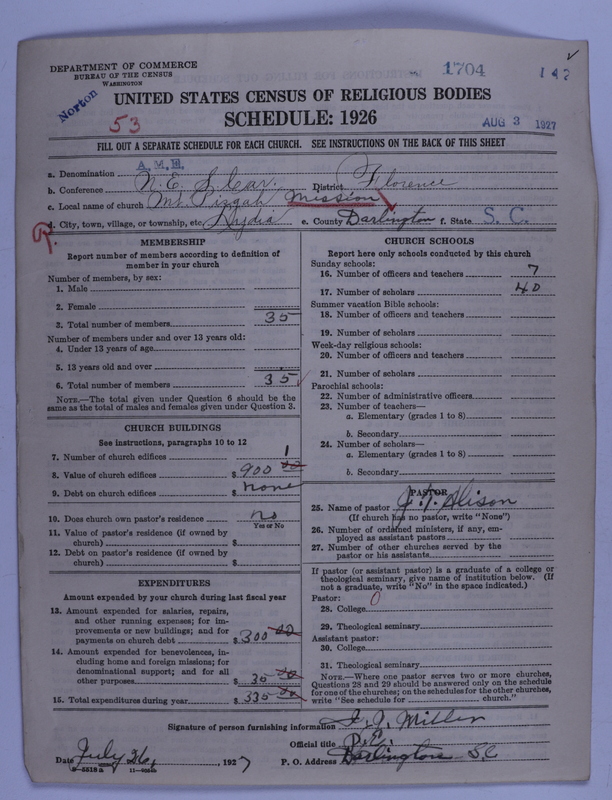 DEPARTMENT OF COMMERCE
BUREAU OF THE CENSUS
WASHINGTON
1704
142
Norton
53
UNITED STATES CENSUS OF RELIGIOUS BODIES
SCHEDULE: 1926
AUG 3 1927
FILL OUT A SEPARATE SCHEDULE FOR EACH CHURCH. SEE INSTRUCTIONS ON THE BACK OF THIS SHEET
a. Denomination A.M.E.
b. Conference N. E. S. Car. District Florence
c. Local name of church Mt. Pisgah Mission
d. City, town, village, or township, etc. Lydia e. County Darlington f. State S. C.
MEMBERSHIP
Report number of members according to definition of
member in your church
Number of members, by sex:
1. Male
2. Female
3. Total number of members 35
Number of members under and over 13 years old:
4. Under 13 years of age
5. 13 years old and over
6. Total number of members 35
NOTE.—The total given under Question 6 should be the
same as the total of males and females given under Question 3.
CHURCH BUILDINGS
See instructions, paragraphs 10 to 12
7. Number of church edifices 1
8. Value of church edifices $ 900 00
9. Debt on church edifices $ none
10. Does church own pastor's residence no
Yes or No
11. Value of pastor's residence (if owned by
church) $
12. Debt on pastor's residence (if owned by
church) $
EXPENDITURES
Amount expended by your church during last fiscal year
13. Amount expended for salaries, repairs,
and other running expenses; for im-
provements or new buildings; and for
payments on church debt $ 300 00
14. Amount expended for benevolences, in-
cluding home and foreign missions; for
denominational support; and for all
other purposes $ 35 00
15. Total expenditures during year $ 335 00
CHURCH SCHOOLS
Report here only schools conducted by this church
Sunday schools:
16. Number of officers and teachers 7
17. Number of scholars 40
Summer vacation Bible schools:
18. Number of officers and teachers
19. Number of scholars
Week-day religious schools:
20. Number of officers and teachers
21. Number of scholars
Parochial schools:
22. Number of administrative officers
23. Number of teachers—
a. Elementary (grades 1 to 8)
b. Secondary
24. Number of scholars—
a. Elementary (grades 1 to 8)
b. Secondary
PASTOR
25. Name of pastor
(If church has no pastor, write "None")
26. Number of ordained ministers, if any, em-
ployed as assistant pastors
27. Number of other churches served by the
pastor or his assistants
If pastor (or assistant pastor) is a graduate of a college or
theological seminary, give name of institution below. (If
not a graduate, write "No" in the space indicated.)
Pastor: 0
28. College
29. Theological seminary
Assistant pastor:
30. College
31. Theological seminary
NOTE.—Where one pastor serves two or more churches,
Questions 28 and 29 should be answered only on the schedule
for one of the churches; on the schedules for the other churches,
write "See schedule for church."
Signature of person furnishing information Miller
Official title P. E.
Date July 26, 1927 P. O. Address Darlington S C